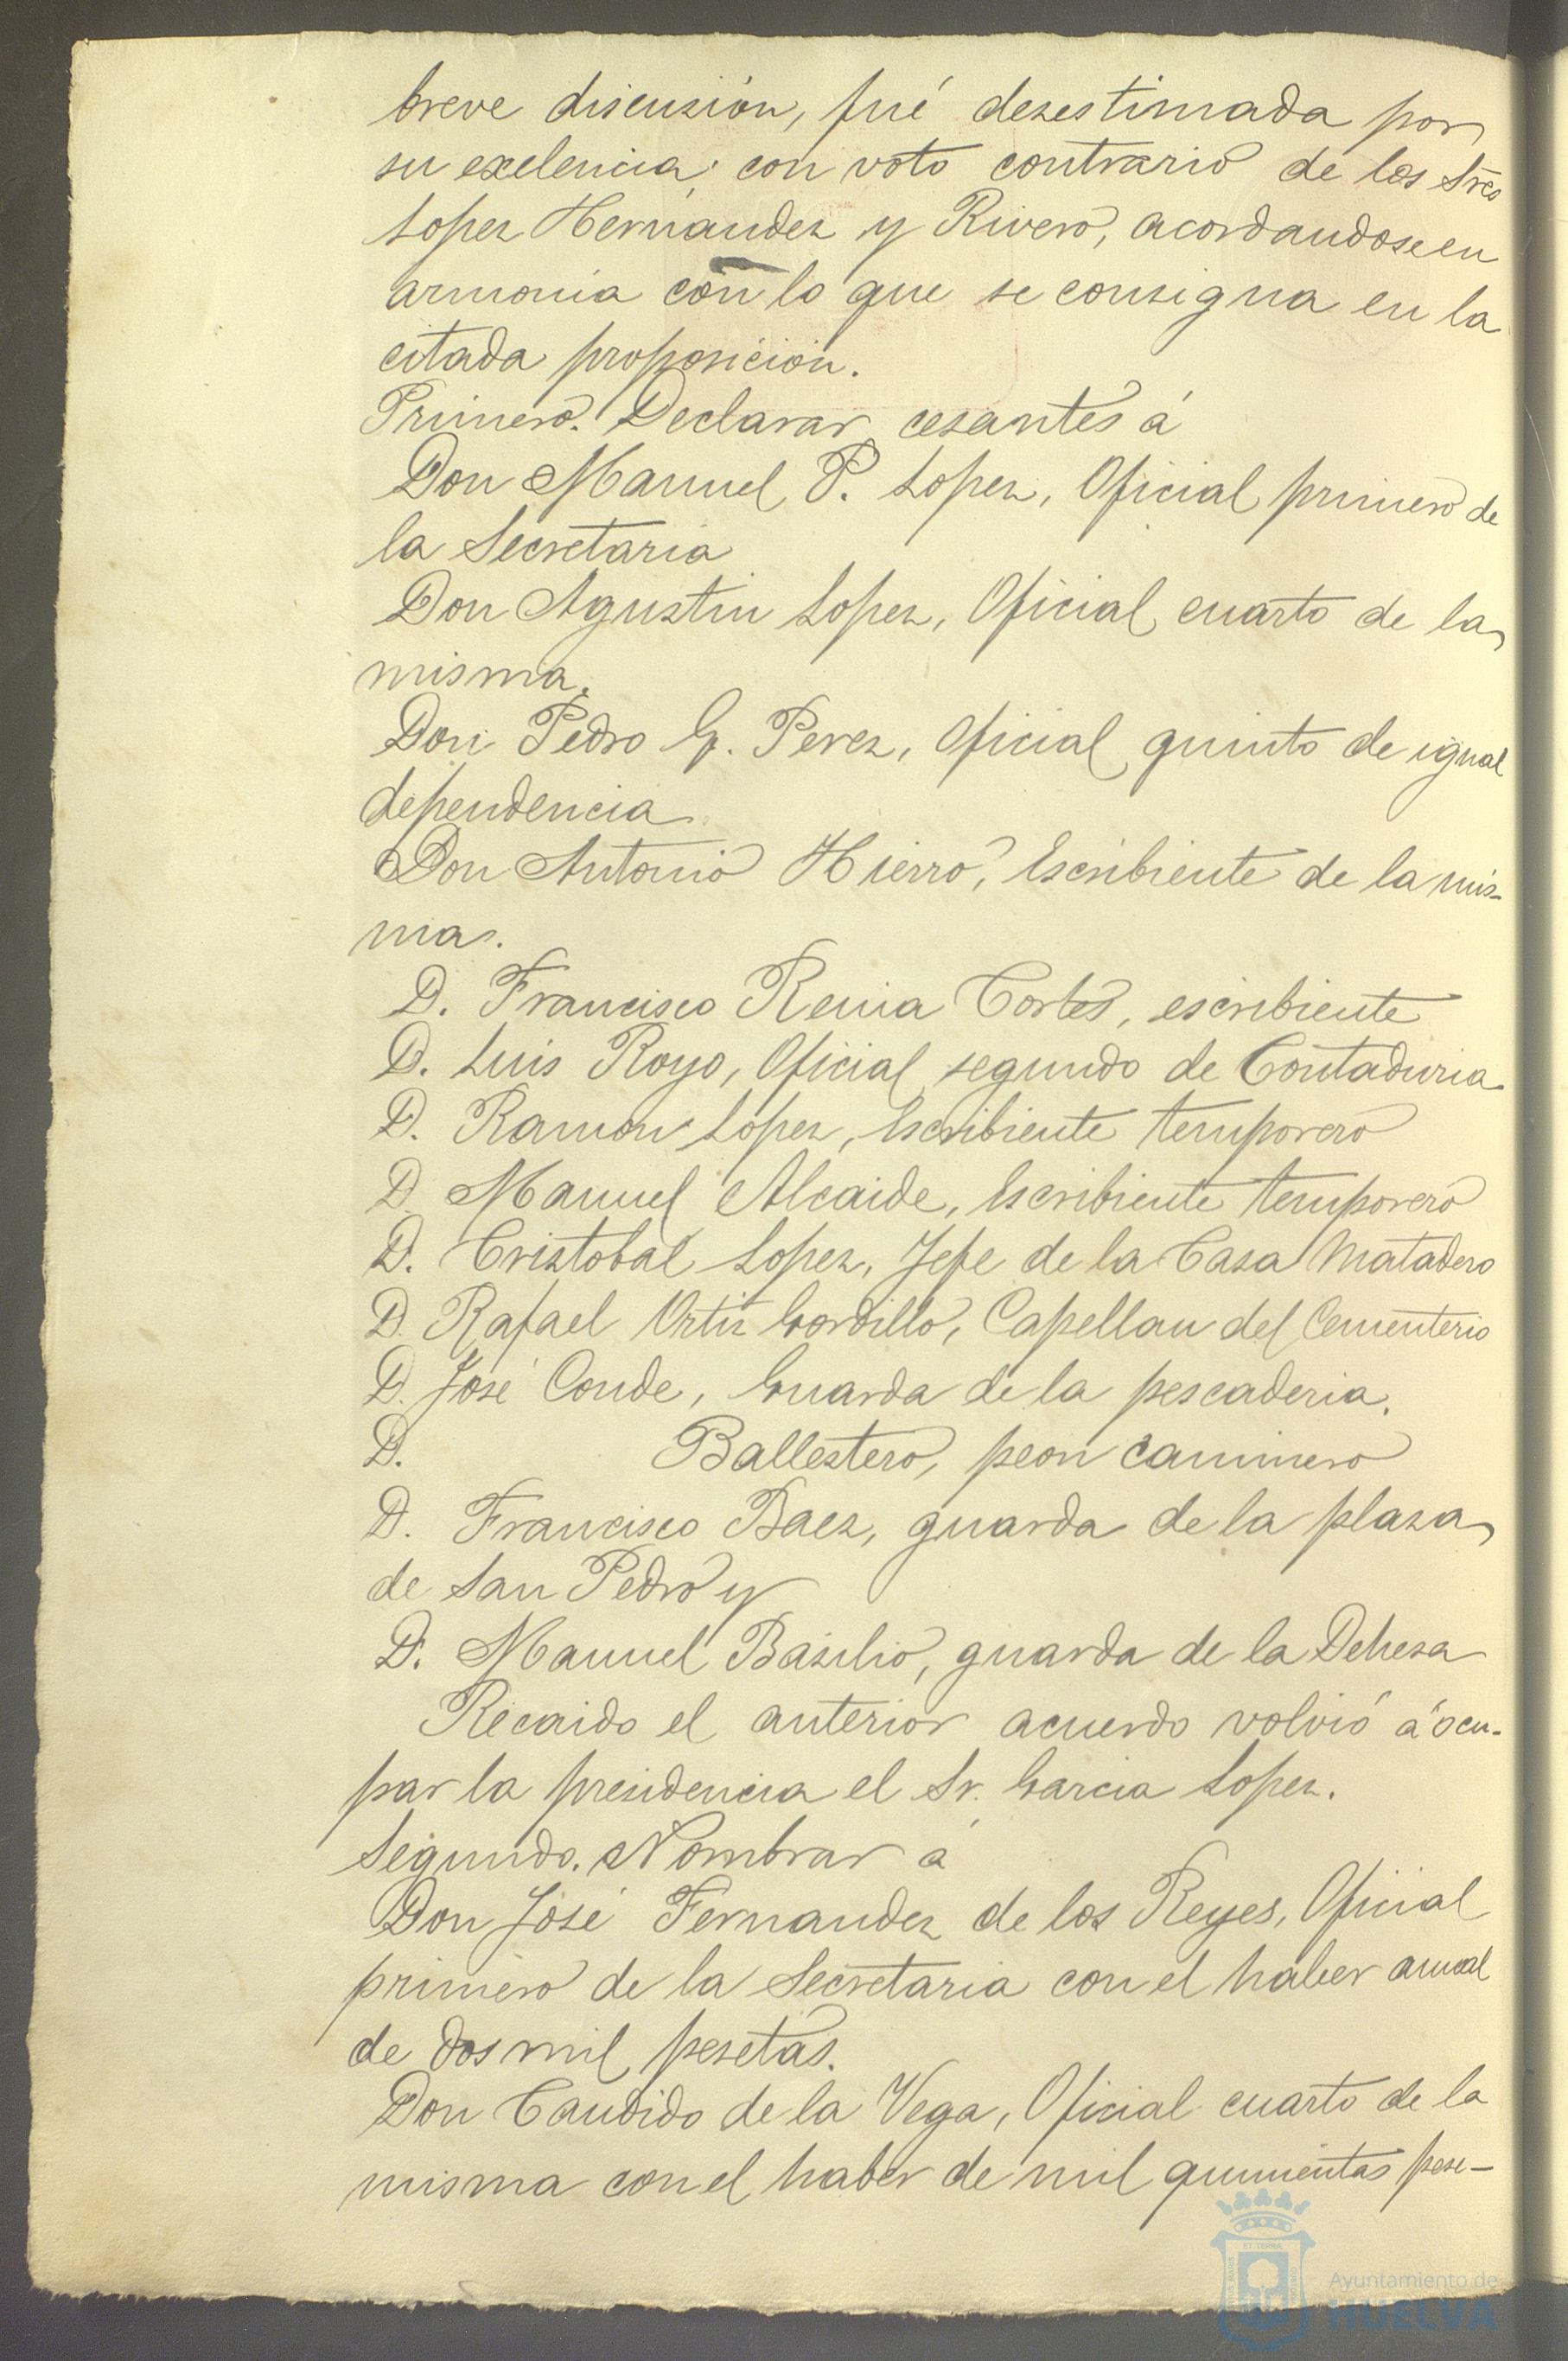 breve discusión, fué desestimada por
su exelencia; con voto contrario de los Sres
Lopez Hernandez y Rivero, acordandose en
armonia con lo que se consigna en la
citada proposicion.
Primero. Declarar cesantes á
Don Manuel P. Lopez, Oficial primero de
la Secretaria
Don Agustin Lopez, Oficial cuarto de la
misma.
Don Pedro G. Perez, Oficial quinto de igual
dependencia
Don Antonio Hierro, Escribiente de la mis-
ma.
D. Francisco Reina Cortés, escribiente
D. Luis Royo, Oficial segundo de Contaduria
D. Ramon Lopez, Escribiente temporero
D Manuel Alcaide, Escribiente temporero
D. Cristobal Lopez, Jefe de la Casa Matadero
D. Rafael Ortiz Gordillo, Capellan del Cementerio
D. José Conde, Guarda de la pescaderia.
D. Ballestero, peon caminero
D. Francisco Baez, guarda de la plaza
de San Pedro y
D. Manuel Basilio, guarda de la Dehesa
Recaido el anterior acuerdo volvió á ocu-
par la presidencia el Sr. Garcia Lopez.
Segundo. Nombrar á
Don José Fernandez de los Reyes, Oficial
primero de la Secretaria con el haber anual
de dos mil pesetas.
Don Candido de la Vega, Oficial cuarto de la
misma con el haber de mil quinientas pese-
Ayuntamiento de
HUELVA